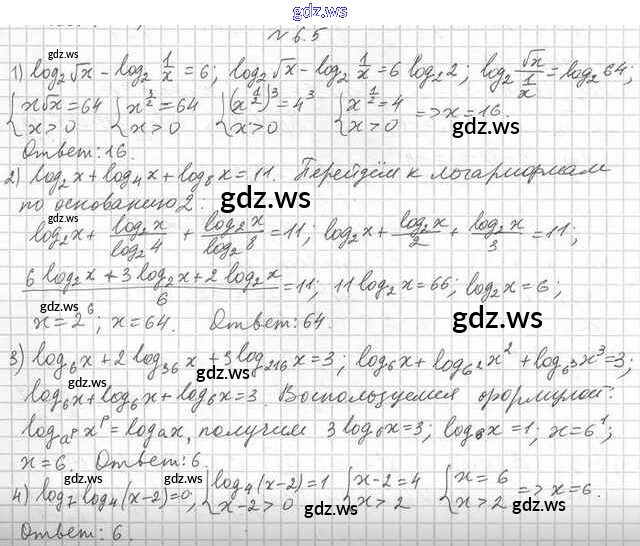 gdz.ws
№ 6.5
gdz.ws
1) log₂√x - log₂ 1/x = 6; log₂√x - log₂ 1/x = 6 log₂2; log₂ √x/(1/x) = log₂64;
{x√x = 64 {x^(3/2) = 64 {(x^(1/2))³ = 4³ {x^(1/2) = 4 => x = 16.
{x > 0 {x > 0 {x > 0 {x > 0 gdz.ws
Ответ: 16. gdz.ws
2) log₂x + log₄x + log₈x = 11. Перейдём к логарифмам
по основанию 2: gdz.ws
gdz.ws
log₂x + log₂x/log₂4 + log₂x/log₂8 = 11; log₂x + log₂x/2 + log₂x/3 = 11;
(6 log₂x + 3 log₂x + 2 log₂x)/6 = 11; 11 log₂x = 66; log₂x = 6;
x = 2⁶; x = 64. Ответ: 64. gdz.ws
3) log₆x + 2 log₃₆x + 3 log₂₁₆x = 3; log₆x + log₆²x² + log₆³x³ = 3;
gdz.ws gdz.ws
log₆x + log₆x + log₆x = 3. Воспользуемся формулой:
log_(a^p) x^p = logₐx, получим 3 log₆x = 3; log₆x = 1; x = 6¹;
x = 6. Ответ: 6.
gdz.ws
4) log₇log₄(x-2) = 0, {log₄(x-2) = 1 {x-2 = 4 {x = 6 => x = 6.
{x-2 > 0 {x > 2 {x > 2
gdz.ws gdz.ws
Ответ: 6.